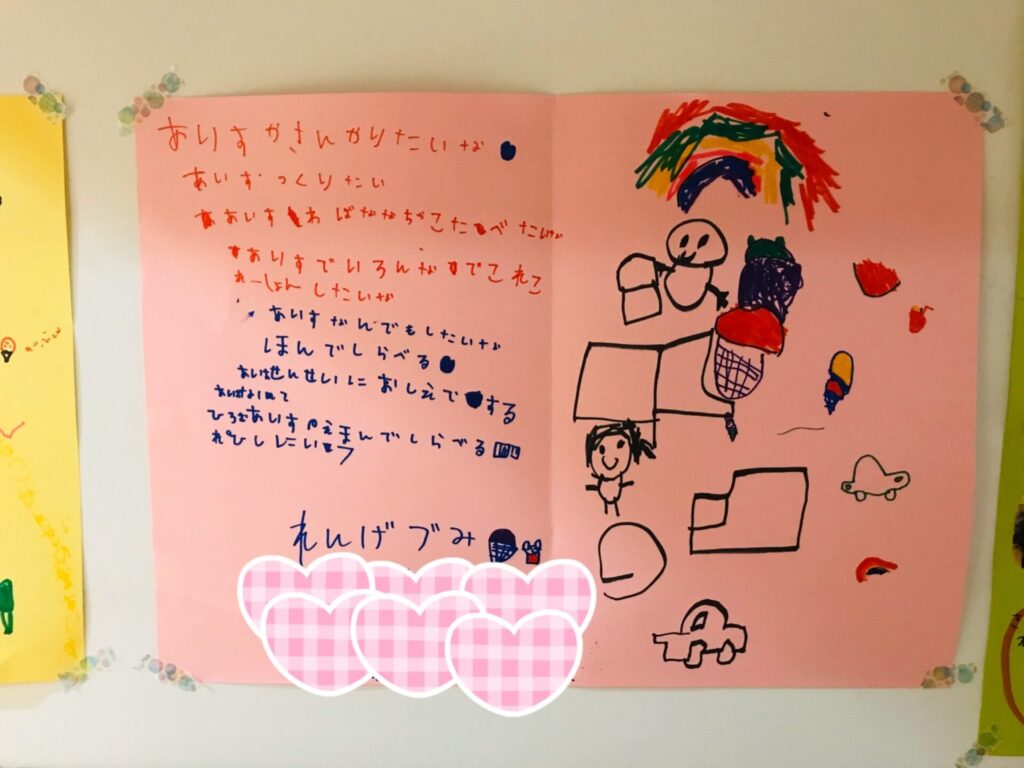 ありすかきんかりたいな
あいすつくりたい
あいす わ ばななちょこたべたいな
ありすでいろんなすでこれこ
れーしょんしたいな
あいすなんでもしたいな
ほんでしらべる
せんせいにおしえで する
あいす えほんでしらべる
れんげづみ